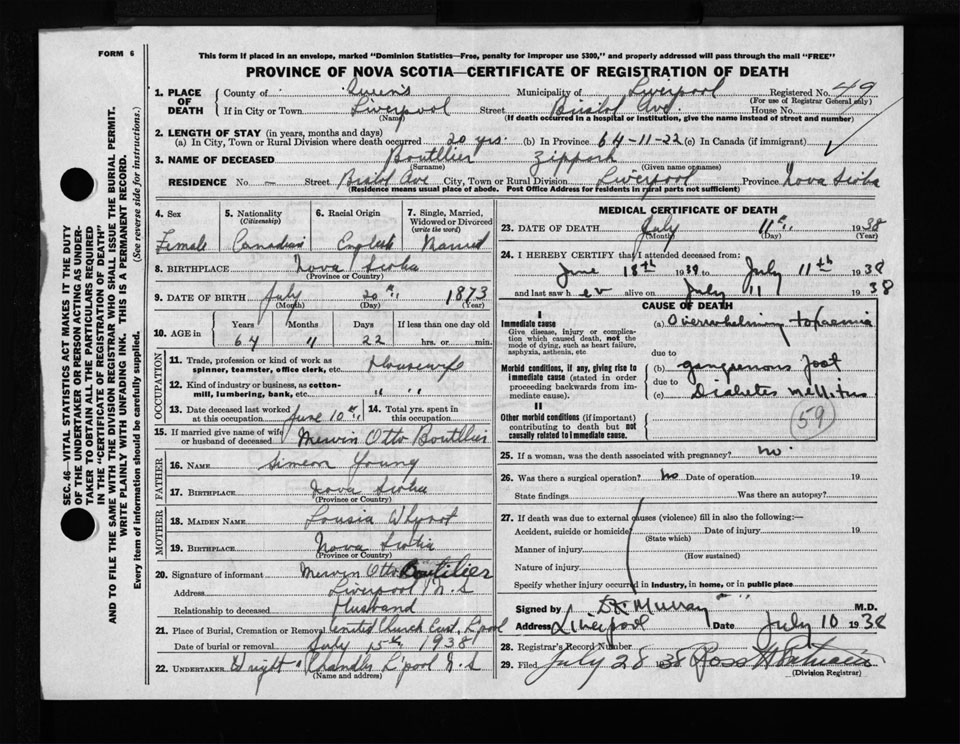 FORM 6
This form if placed in an envelope, marked "Dominion Statistics—Free, penalty for improper use $300," and properly addressed will pass through the mail "FREE"
PROVINCE OF NOVA SCOTIA—CERTIFICATE OF REGISTRATION OF DEATH
1. PLACE OF DEATH County of Queens Municipality of Liverpool Registered No. 49
(For use of Registrar General only)
If in City or Town Liverpool Street Bristol Ave. House No.
(Name) (If death occurred in a hospital or institution, give the name instead of street and number)
2. LENGTH OF STAY (in years, months and days)
(a) In City, Town or Rural Division where death occurred 20 yrs. (b) In Province 64-11-22 (c) In Canada (if immigrant)
3. NAME OF DECEASED Boutllier Zipporh
(Surname) (Given name or names)
RESIDENCE No — Street Bristol Ave City, Town or Rural Division Liverpool Province Nova Scotia
(Residence means usual place of abode. Post Office Address for residents in rural parts not sufficient)
4. Sex 5. Nationality (Citizenship) 6. Racial Origin 7. Single, Married, Widowed or Divorced (write the word)
Female Canadian English Married
8. BIRTHPLACE Nova Scotia
(Province or Country)
9. DATE OF BIRTH July 20th 1873
(Month) (Day) (Year)
10. AGE in Years Months Days If less than one day old
64 11 22 hrs. or min.
OCCUPATION
11. Trade, profession or kind of work as spinner, teamster, office clerk, etc. Housewife
12. Kind of industry or business, as cotton-mill, lumbering, bank, etc. " "
13. Date deceased last worked at this occupation June 10th 14. Total yrs. spent in this occupation
15. If married give name of wife or husband of deceased Mervin Otto Boutllier
FATHER
16. NAME Simeon Young
17. BIRTHPLACE Nova Scotia
(Province or Country)
MOTHER
18. MAIDEN NAME Lousia Whynot
19. BIRTHPLACE Nova Scotia
(Province or Country)
20. Signature of informant Mervin Otto Boutilier
Address Liverpool N.S
Relationship to deceased Husband
21. Place of Burial, Cremation or Removal United Church Cem., L'pool
Date of burial or removal July 15th, 1938
22. UNDERTAKER Wright & Chandler L'pool N.S
(Name and address)
MEDICAL CERTIFICATE OF DEATH
23. DATE OF DEATH July 11th 1938
(Month) (Day) (Year)
24. I HEREBY CERTIFY that I attended deceased from:
June 18th 1938 to July 11th 1938
and last saw h er alive on July 11 1938
CAUSE OF DEATH
I
Immediate cause
Give disease, injury or complication which caused death, not the mode of dying, such as heart failure, asphyxia, asthenia, etc
(a) Overwhelming toxaemia
due to
Morbid conditions, if any, giving rise to immediate cause (stated in order proceeding backwards from immediate cause).
(b) gangrenous foot
due to
(c) Diabetes mellitus
59
II
Other morbid conditions (if important) contributing to death but not causally related to immediate cause.
25. If a woman, was the death associated with pregnancy? no.
26. Was there a surgical operation? No Date of operation 19
State findings Was there an autopsy?
27. If death was due to external causes (violence) fill in also the following:—
Accident, suicide or homicide Date of injury 19
(State which)
Manner of injury
(How sustained)
Nature of injury
Specify whether injury occurred in industry, in home, or in public place
Signed by Murray M.D.
Address Liverpool Date July 10 1938
28. Registrar's Record Number
29. Filed July 28 1938 Ross
(Division Registrar)
SEC. 46—VITAL STATISTICS ACT MAKES IT THE DUTY
OF THE UNDERTAKER OR PERSON ACTING AS UNDER-
TAKER TO OBTAIN ALL THE PARTICULARS REQUIRED
IN THE "CERTIFICATE OF REGISTRATION OF DEATH"
AND TO FILE THE SAME WITH THE DIVISION REGISTRAR WHO SHALL ISSUE THE BURIAL PERMIT.
WRITE PLAINLY WITH UNFADING INK. THIS IS A PERMANENT RECORD.
Every item of information should be carefully supplied. (See reverse side for instructions.)